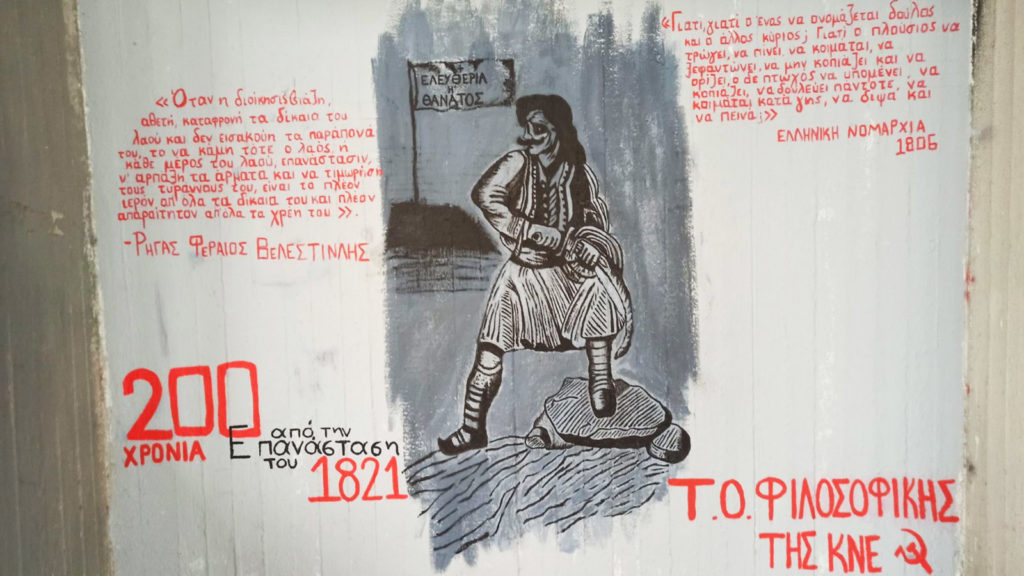 «Όταν η διοίκησις βιάζη,
αθετή, καταφρονή τα δίκαια του
λαού και δεν εισακούη τα παράπονά
του, το να κάμη τότε ο λαός, ή
κάθε μέρος του λαού, επανάστασιν,
ν' αρπάξη τα άρματα και να τιμωρήση
τους τυράννους του, είναι το πλέον
ιερόν απ' όλα τα δίκαιά του και πλέον
απαραίτητον απ' όλα τα χρέη του».
-ΡΗΓΑΣ ΦΕΡΑΙΟΣ ΒΕΛΕΣΤΙΝΛΗΣ
ΕΛΕΥΘΕΡΙΑ
Η
ΘΑΝΑΤΟΣ
«Γιατί, γιατί ο ένας να ονομάζεται δούλος
και ο άλλος κύριος; Γιατί ο πλούσιος να
τρώγει, να πίνει, να κοιμάται, να
ξεφαντώνει, να μην κοπιάζει και να
ορίζει, ο δε πτωχός να υπομένει, να
κοπιάζει, να δουλεύει πάντοτε, να
κοιμάται κατά γης, να διψά και
να πεινά;»
ΕΛΛΗΝΙΚΗ ΝΟΜΑΡΧΙΑ
1806
200
ΧΡΟΝΙΑ
από την
Επανάσταση
του 1821
Τ.Ο. ΦΙΛΟΣΟΦΙΚΗΣ
ΤΗΣ ΚΝΕ